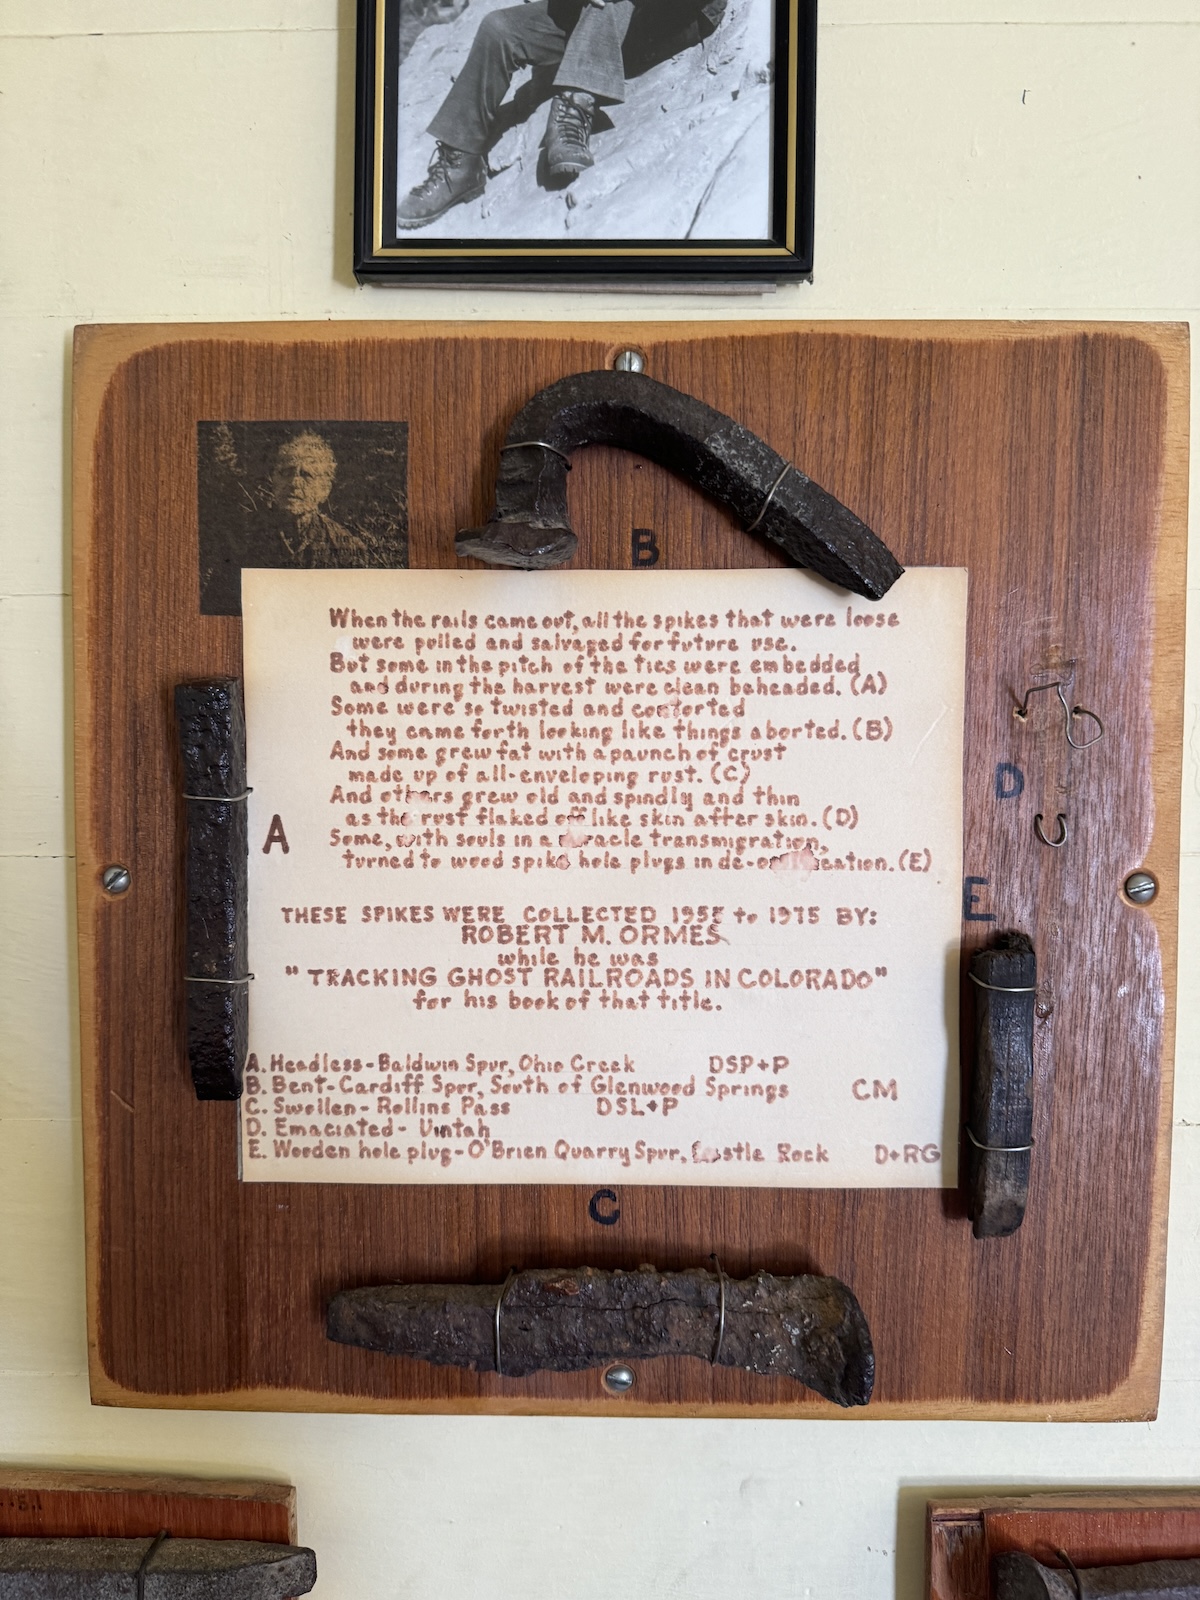 B
When the rails came out, all the spikes that were loose
were pulled and salvaged for future use.
But some in the pitch of the ties were embedded
and during the harvest were clean beheaded. (A)
Some were so twisted and contorted
they came forth looking like things aborted. (B)
And some grew fat with a paunch of crust
made up of all-enveloping rust. (C)
And others grew old and spindly and thin
as the rust flaked off like skin after skin. (D)
Some, with souls in a miracle transmigration,
turned to wood spike hole plugs in (E)
D
A
E
THESE SPIKES WERE COLLECTED 1955 to 1975 BY:
ROBERT M. ORMES
while he was
"TRACKING GHOST RAILROADS IN COLORADO"
for his book of that title.
A. Headless - Baldwin Spur, Ohio Creek DSP+P
B. Bent - Cardiff Spur, South of Glenwood Springs CM
C. Swollen - Rollins Pass DSL+P
D. Emaciated - Uintah
E. Wooden hole plug - O'Brien Quarry Spur, Castle Rock D+RG
C